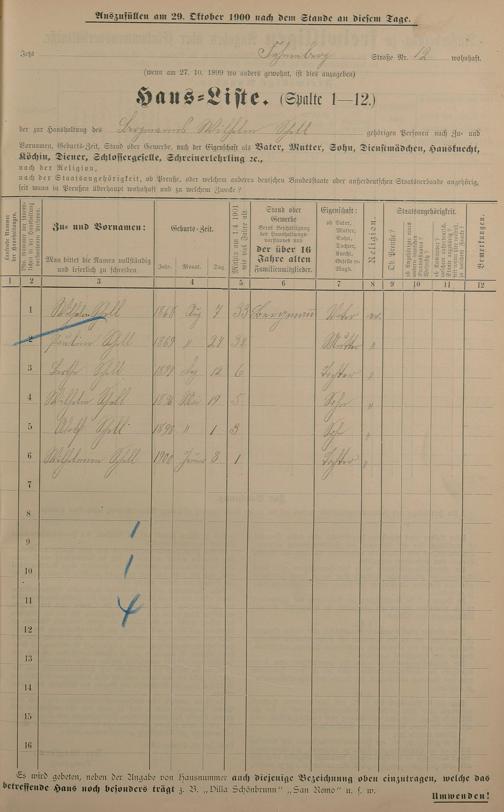 Auszufüllen am 29. Oktober 1900 nach dem Stande an diesem Tage.
Jetzt Straße Nr. 12 wohnhaft.
(wenn am 27. 10. 1899 wo anders gewohnt, ist dies anzugeben)
Haus-Liste. (Spalte 1—12.)
der zur Haushaltung des Bergmanns Wilhelm Schell gehörigen Personen nach Zu- und
Vornamen, Geburts-Zeit, Stand oder Gewerbe, nach der Eigenschaft als Vater, Mutter, Sohn, Dienstmädchen, Hausknecht,
Köchin, Diener, Schlossergeselle, Schreinerlehrling ꝛc.,
nach der Religion,
nach der Staatsangehörigkeit, ob Preuße, oder welchem anderen deutschen Bundesstaate oder außerdeutschen Staatsverbande angehörig,
seit wann in Preußen überhaupt wohnhaft und zu welchem Zwecke?
Zu- und Vornamen:
Man bittet die Namen vollständig
und leserlich zu schreiben
Geburts-Zeit.
Jahr. Monat. Tag
Mithin am 1./4. 1901
wie viel Jahre alt
Stand oder
Gewerbe
Beruf bezüglich
der Haushaltungs-
vorstandes und
der über 16
Jahre alten
Familienmitglieder.
Eigenschaft:
ob Vater,
Mutter,
Sohn,
Tochter,
Diener,
Geselle o.
Magd.
Religion.
Staatsangehörigkeit.
Ob Preuße?
Bemerkungen.
1 2 3 4 5 6 7 8 9 10 11 12
1 Wilhelm Schell 1868 Aug 7 33 Bergmann Vater ev.
2 Pauline Schell 1869 " 24 Mutter "
3 Schell 6 Tochter "
4 Wilhelm Schell 1896 Mai 19 5 Sohn "
5 Adolf Schell 1898 " 1 3 Sohn "
6 Wilhelmine Schell 1900 3 1 Tochter "
7
8
9 1
10 1
11 4
12
13
14
15
16
Es wird gebeten, neben der Angabe von Hausnummer auch diejenige Bezeichnung oben einzutragen, welche das
betreffende Haus noch besonders trägt z. B. „Villa Schönbrunn" "San Remo" u. s. w.
Umwenden!